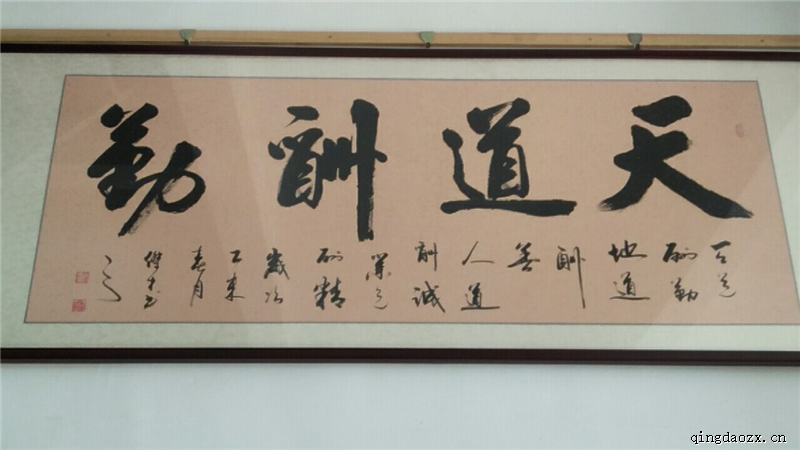 天道酬勤
天道
酬勤
地道
酬
善
人道
酬诚
业道
酬精
岁次
丁未
春月
书
qingdaozx.cn